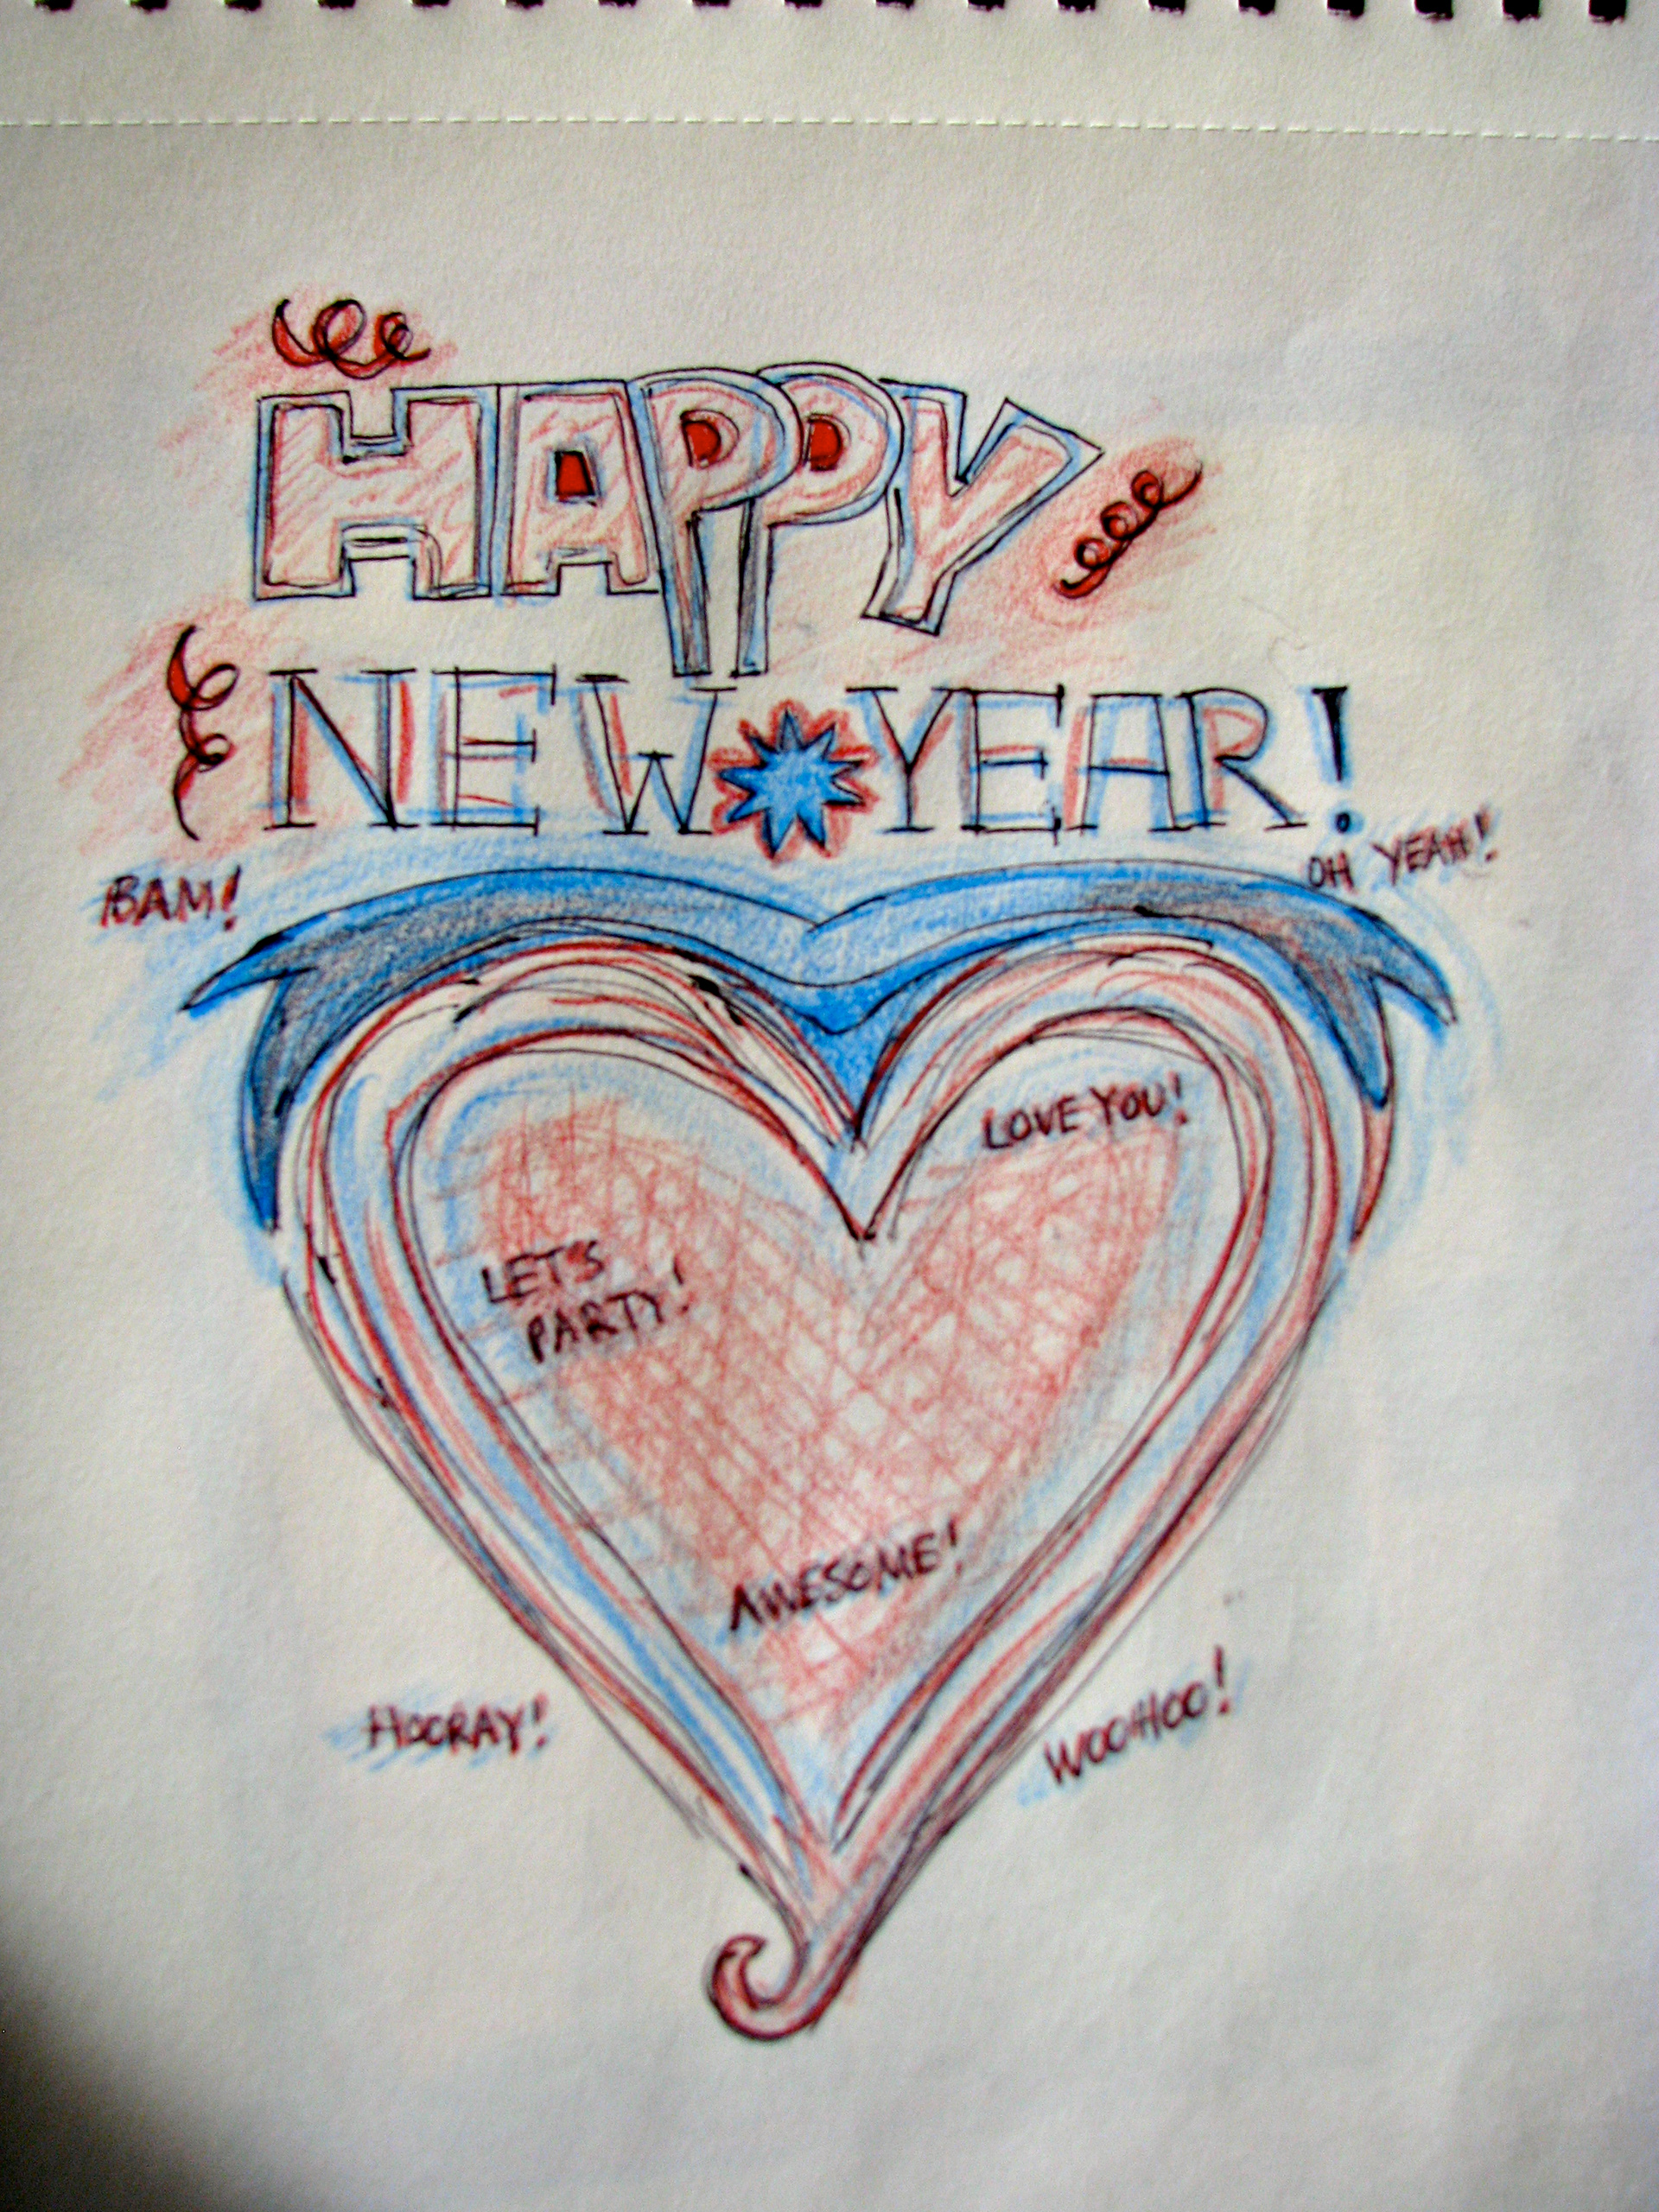 HAPPY
NEW YEAR!
BAM!
OH YEAH!
LOVE YOU!
LET'S
PARTY!
AWESOME!
HOORAY!
WOOHOO!